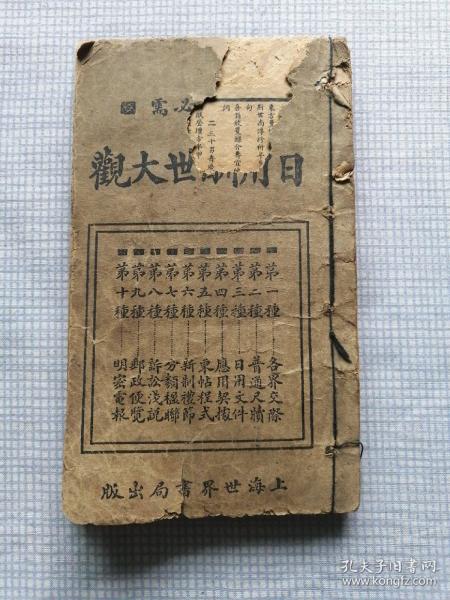 必需
日用酬世大觀
第一種 各界交際
第二種 普通尺牘
第三種 日用文件
第四種 應用契據
第五種 柬帖程式
第六種 新制禮節
第七種 分類楹聯
第八種 訴訟淺説
第九種 郵政便覽
第十種 明密電報
上海世界書局出版
孔夫子旧书网
www.kongfz.com